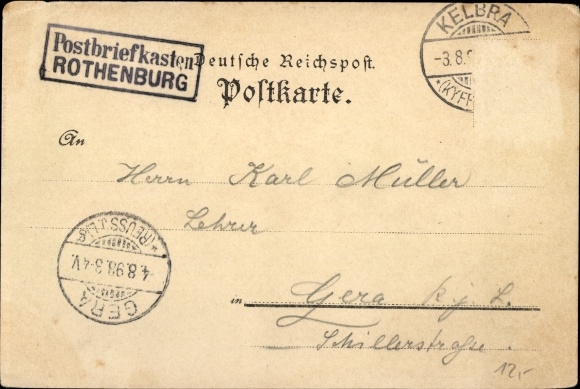 Postbriefkasten
ROTHENBURG
Deutsche Reichspost.
Postkarte.
KELBRA
-3.8.9
(KYFFH
An
Herrn Karl Müller
Lehrer
in Gera r. j. L.
Schillerstraße.
GERA
4.8.98.3-4V.
(REUSS J.L.)
12,-